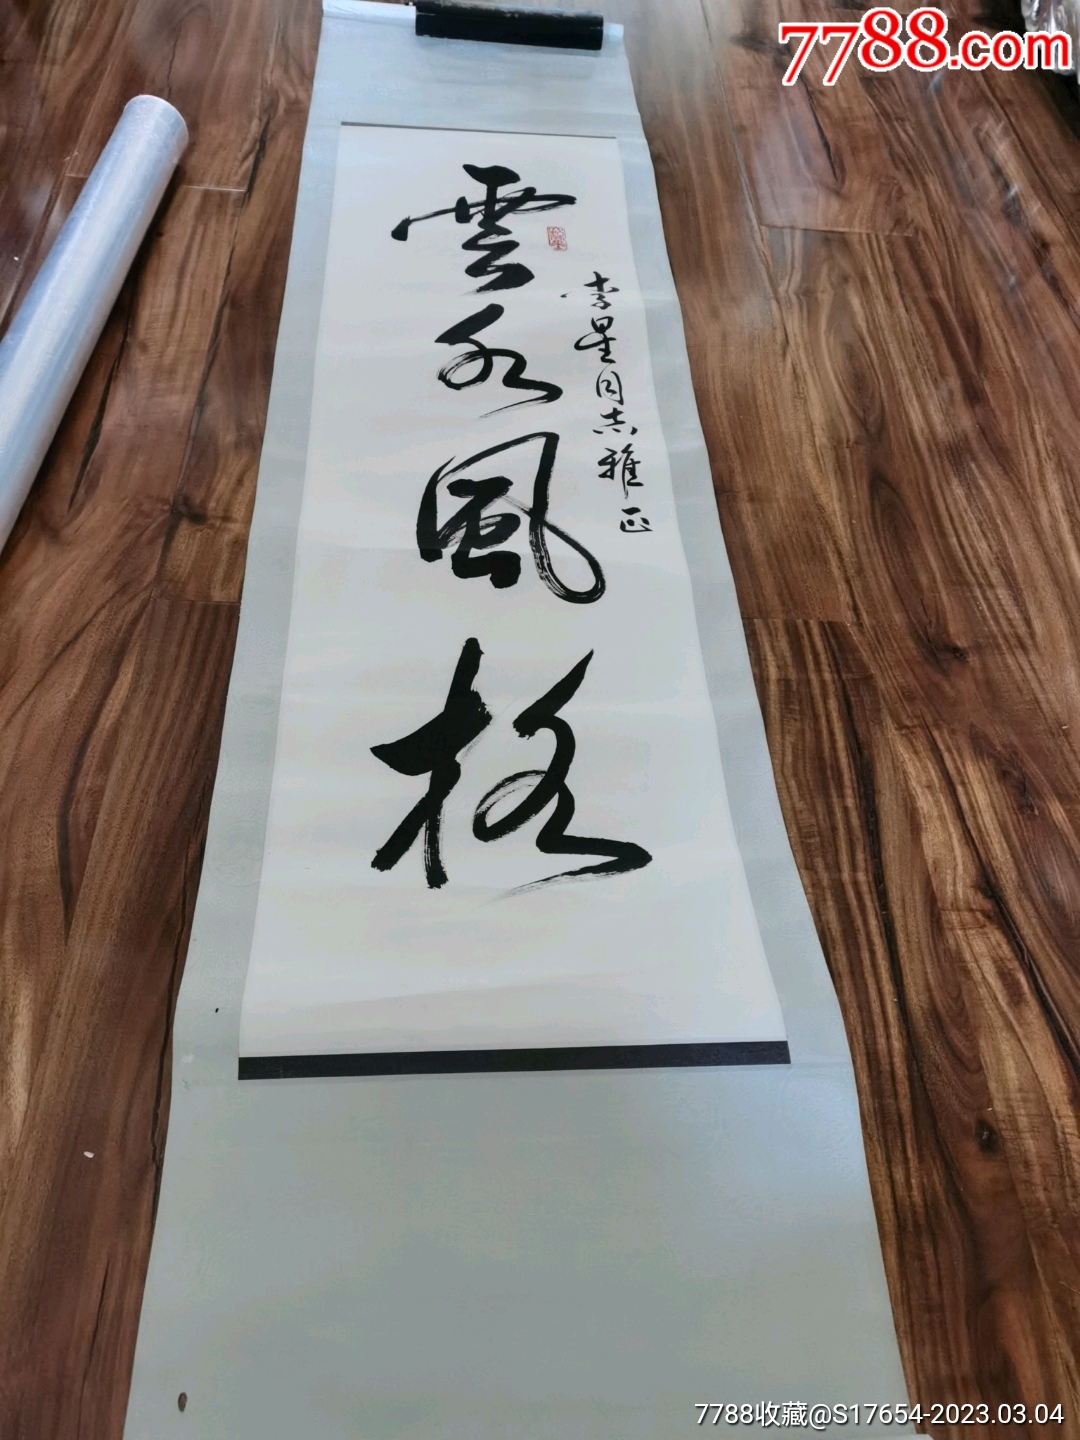 7788.com
雲水風格
李星同志雅正
7788收藏@S17654-2023.03.04